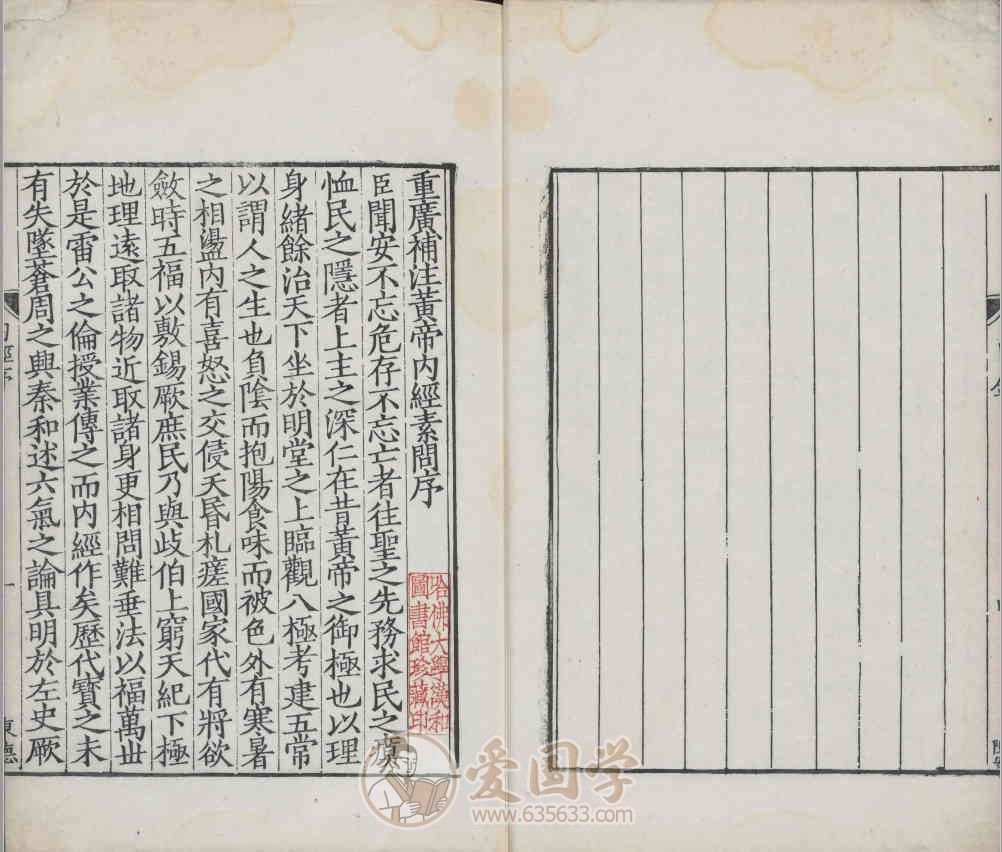 重廣補注黃帝內經素問序
臣聞安不忘危存不忘亡者往聖之先務求民之瘼
恤民之隱者上主之深仁在昔黃帝之御極也以理
身緒餘治天下坐於明堂之上臨觀八極考建五常
以謂人之生也負陰而抱陽食味而被色外有寒暑
之相盪內有喜怒之交侵夭昬札瘥國家代有將欲
斂時五福以敷錫厥庶民乃與歧伯上窮天紀下極
地理遠取諸物近取諸身更相問難垂法以福萬世
於是雷公之倫授業傳之而內經作矣歷代寶之未
有失墜蒼周之興秦和述六氣之論具明於左史厥
哈佛大學漢和
圖書館珍藏印
一
爱国学
www.635633.com